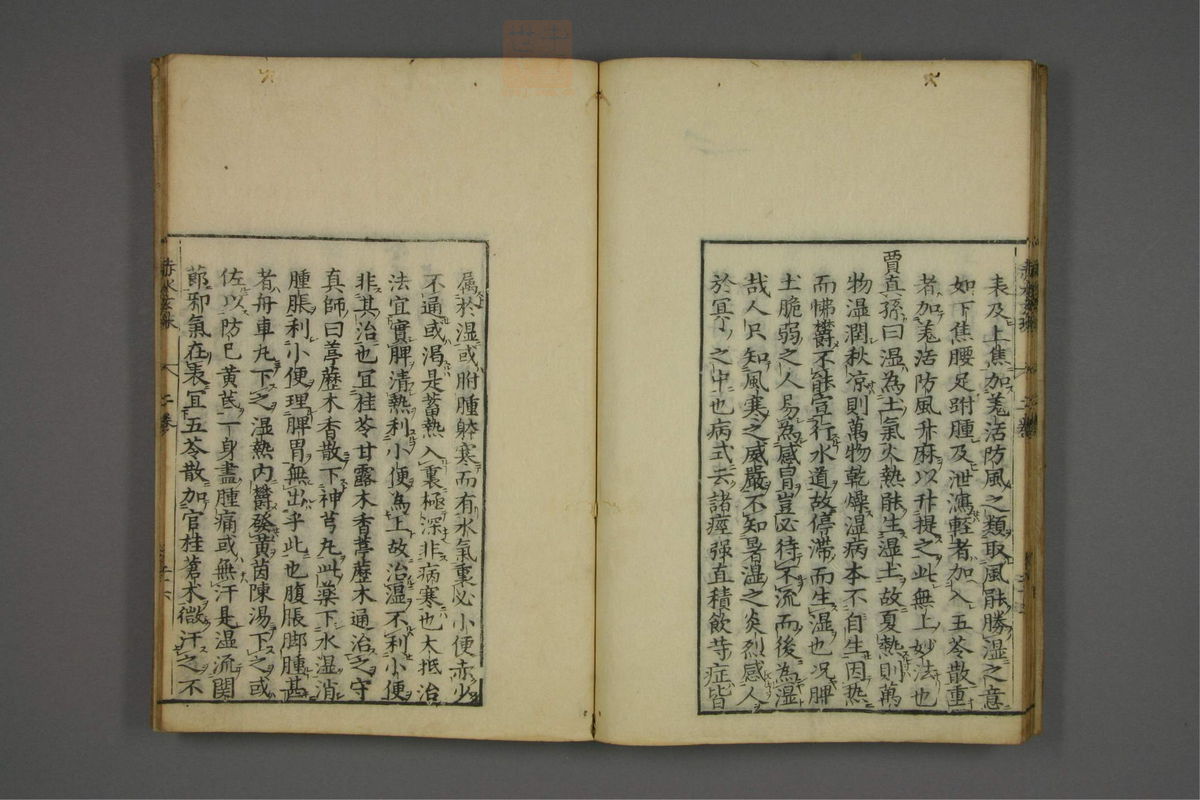 表及上焦加羌活防風之類取風能勝湿之意
如下焦腰足跗腫及泄瀉輕者加入五苓散重
者加羌活防風升麻以升提之此無上妙法也
賈真孫曰湿為土氣火熱能生湿土故夏熱則萬
物湿潤秋凉則萬物乾燥湿病本不自生因热
而怫欝不能宣行水道故停滯而生湿也况脾
土脆弱之人易為感冒豈必待不流而後為湿
哉人只知風寒之威嚴不知暑湿之炎烈感人
於冥冥之中也病式云諸痙强直積飲等症皆
属於湿或胕腫躰寒而有水氣裏必小便赤少
不通或渴是蓄熱入裏極深非病寒也大抵治
法宜實脾清熱利小便為上故治湿不利小便
非其治也宜桂苓甘露木香葶藶木通治之守
真師曰葶藶木香散下神芎丸此藥下水湿消
腫脹利小便理脾胃無出乎此也腹脹脚腫甚
者舟車丸下之湿熱内欝發黄茵陳湯下之或
佐以防已黄芪一身盡腫痛或無汗是湿流関
節邪氣在表宜五苓散加官桂蒼朮微汗之不
赤水玄珠
二卷